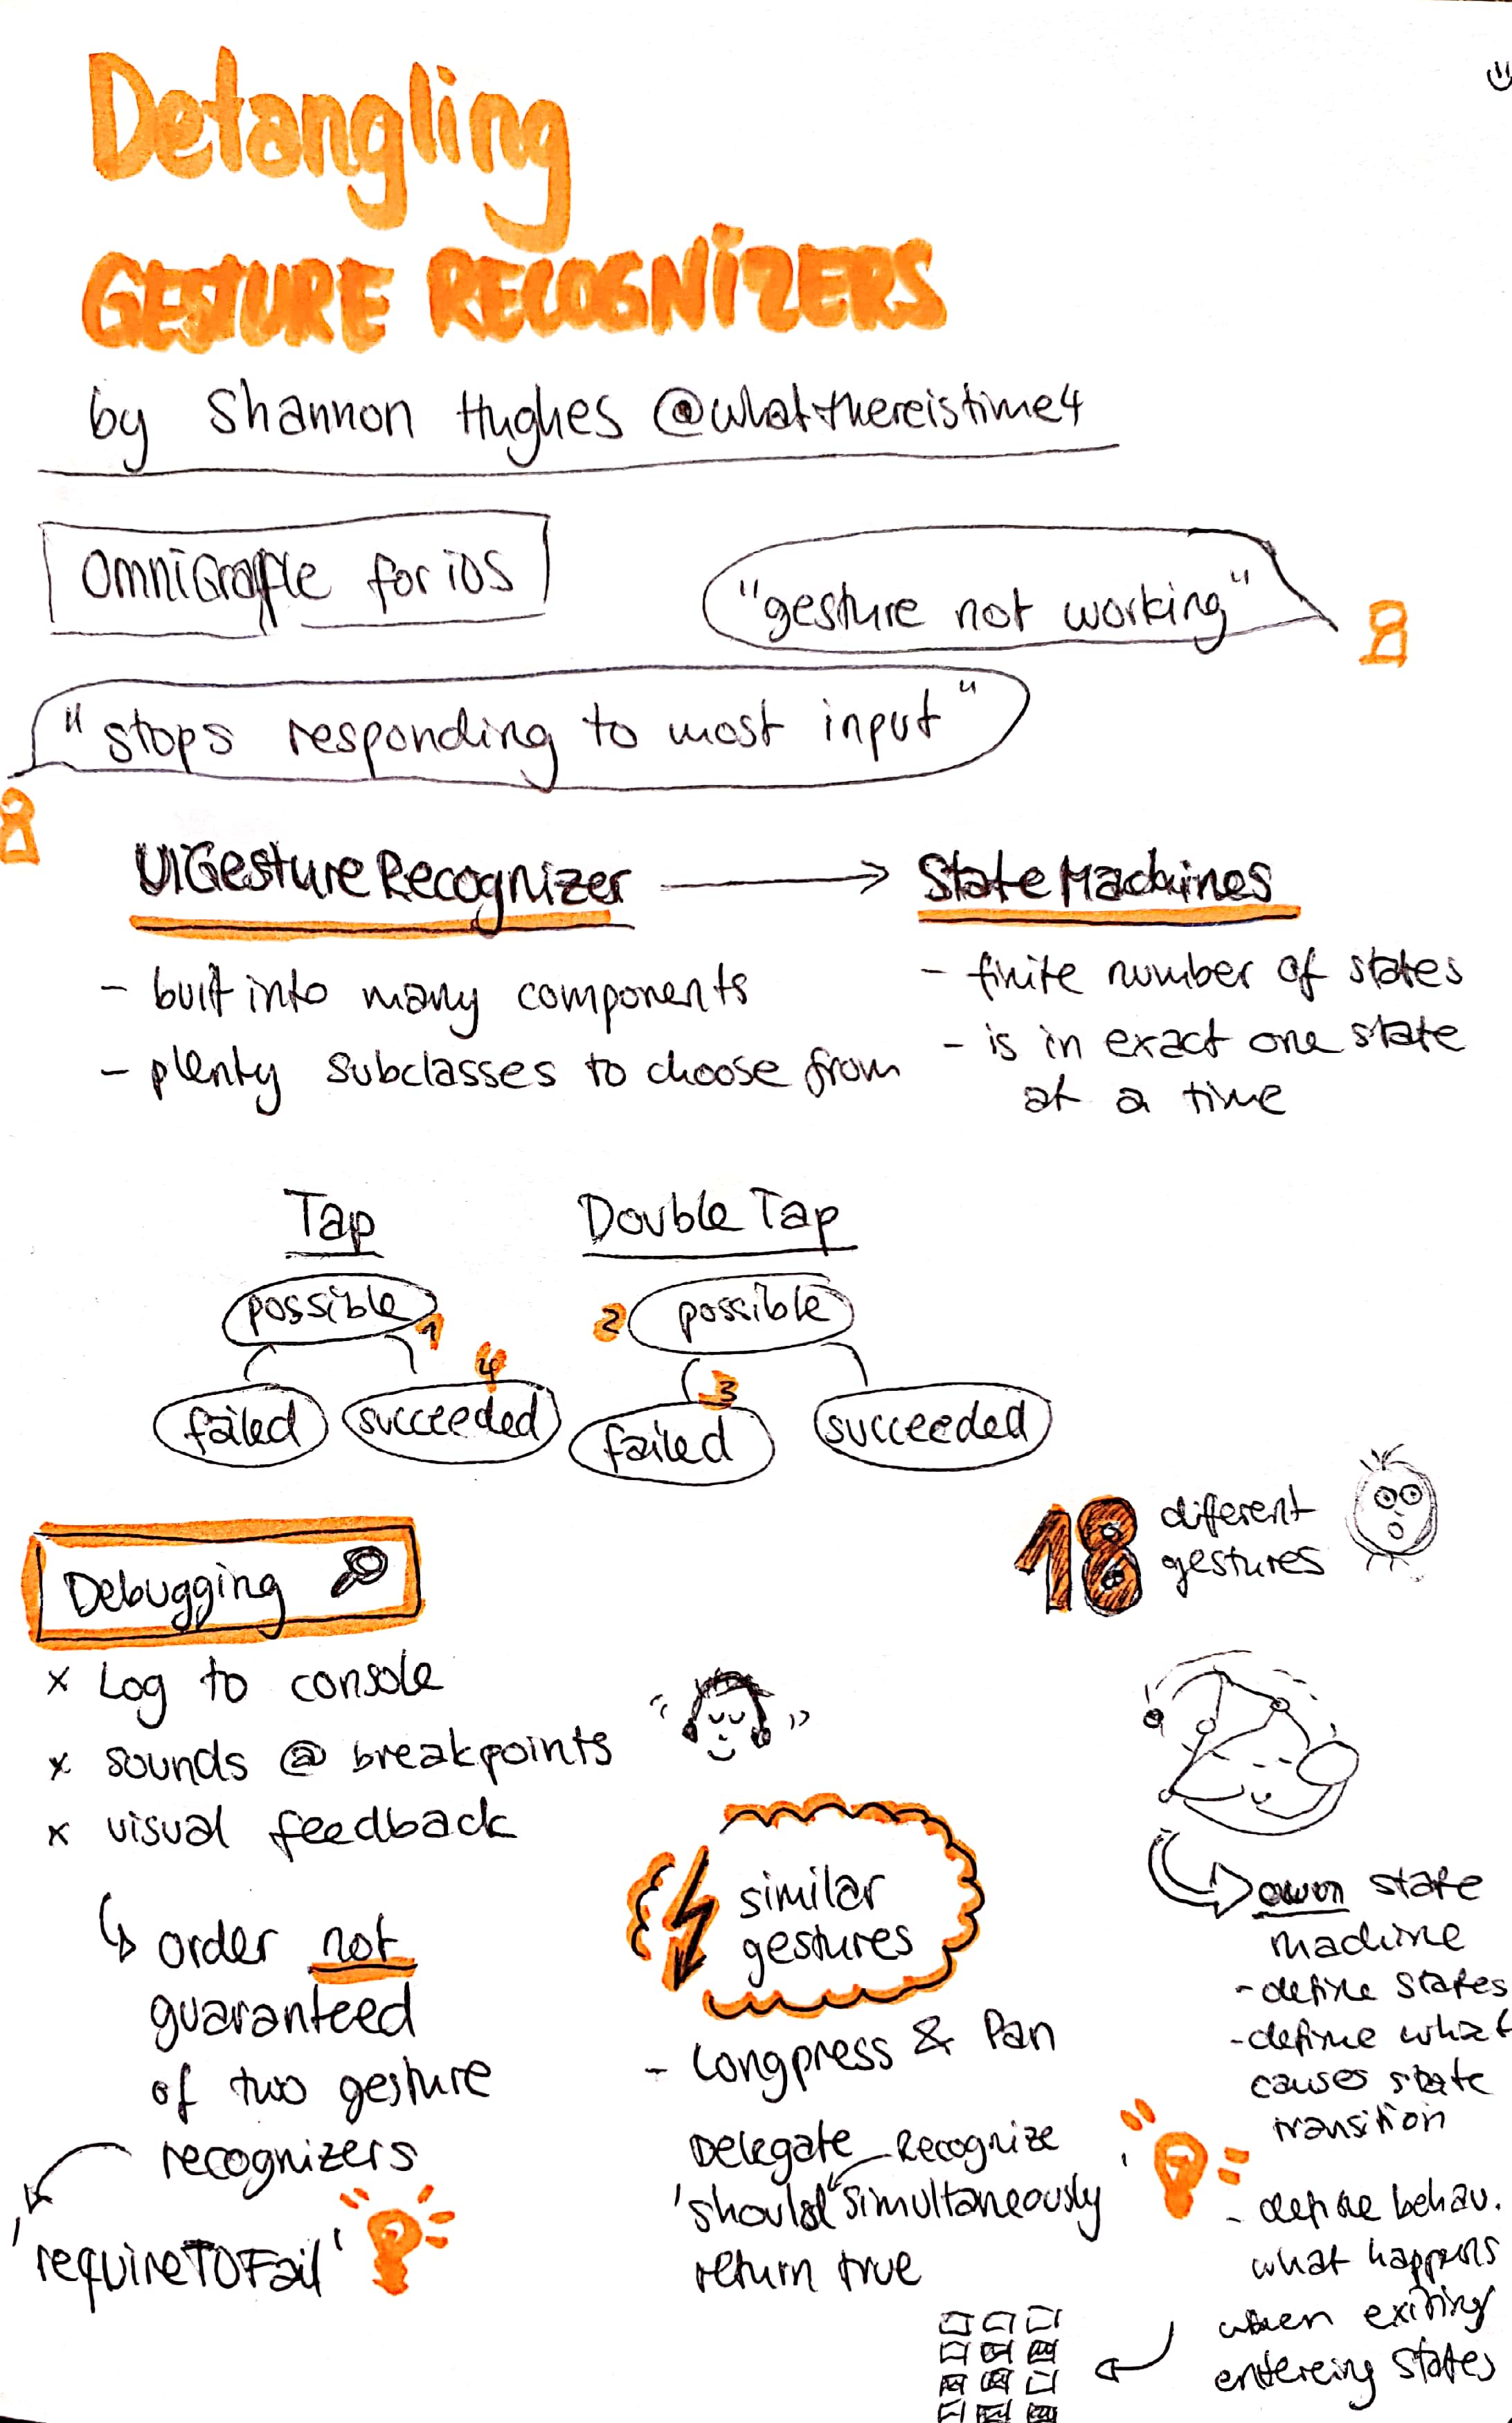 Detangling
GESTURE RECOGNIZERS
by Shannon Hughes @whatthereistime4
OmniGraffle for iOS
"gesture not working"
"stops responding to most input"
UIGestureRecognizer
- built into many components
- plenty subclasses to choose from
State Machines
- finite number of states
- is in exact one state
at a time
Tap
possible 1
failed
4
succeeded
Double Tap
2 possible
3
failed
succeeded
18 different
gestures
Debugging
x Log to console
x sounds @ breakpoints
x visual feedback
order not
guaranteed
of two gesture
recognizers
'requireTOFail'
similar
gestures
- Longpress & Pan
Delegate Recognize
'should simultaneously'
return true
own state
machine
- define states
- define what
causes state
transition
- define behav.
what happens
when exiting
entereing states